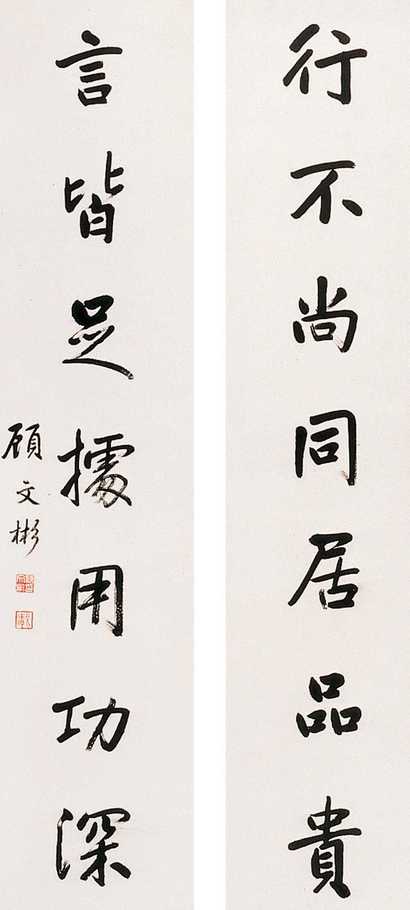 行不尚同居品貴
言皆足據用功深
顧文彬